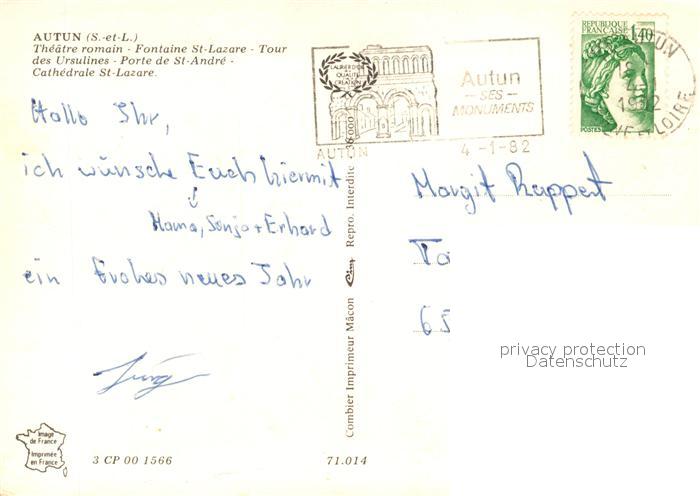 AUTUN (S.-et-L.)
Théâtre romain - Fontaine St-Lazare - Tour
des Ursulines - Porte de St-André -
Cathédrale St-Lazare.
Hallo Ihr,
ich wünsche Euch hiermit
Mama, Sonja + Erhard
ein Frohes neues Jahr
Image
de France
Imprimée
en France
3 CP 00 1566
71.014
Combier Imprimeur Mâcon Cim Repro. Interdite 36.000
LAURIER D'OR
QUALITÉ
CRÉATION
Autun
SES
MONUMENTS
AUTUN
4 -1-82
REPUBLIQUE
FRANÇAISE
1,40
POSTES
1982
LOIRE
Margit Rappert
To
65
privacy protection
Datenschutz